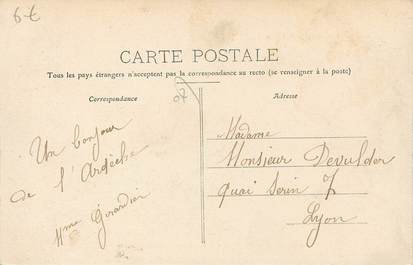 6 €
CARTE POSTALE
Tous les pays étrangers n'acceptent pas la correspondance au recto (se renseigner à la poste)
Correspondance
Adresse
Un bonjour
de l'Ardèche
Mme Girardier
Madame
Monsieur Devulder
quai Serin 7
Lyon